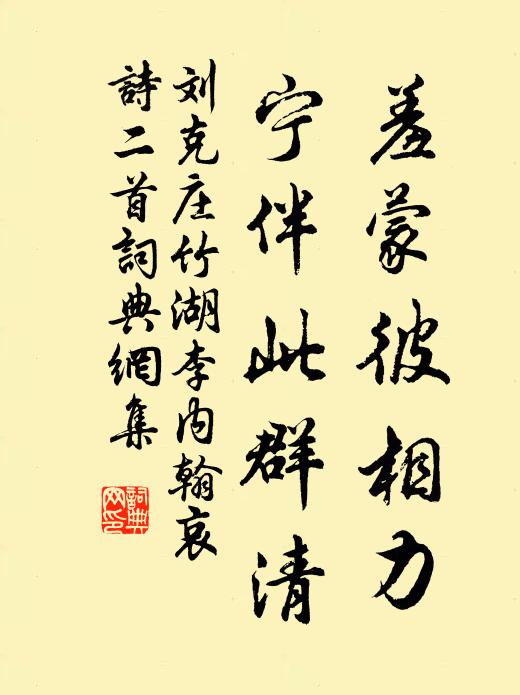 羞蒙彼相力
宁伴此群清
刘克庄竹湖李内翰哀
詩二首詞典網集
詞典网印